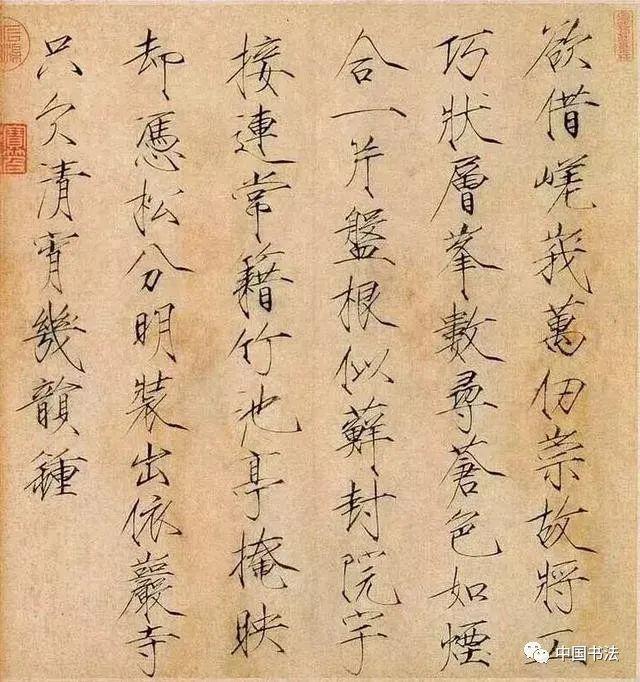 欲借嵯峩萬仞崇故將工
巧狀層峯數尋蒼色如煙
合一片盤根似蘚封院宇
接連常籍竹池亭掩映
却憑松分明裝出依巖寺
只欠清宵幾韻鍾
中国书法